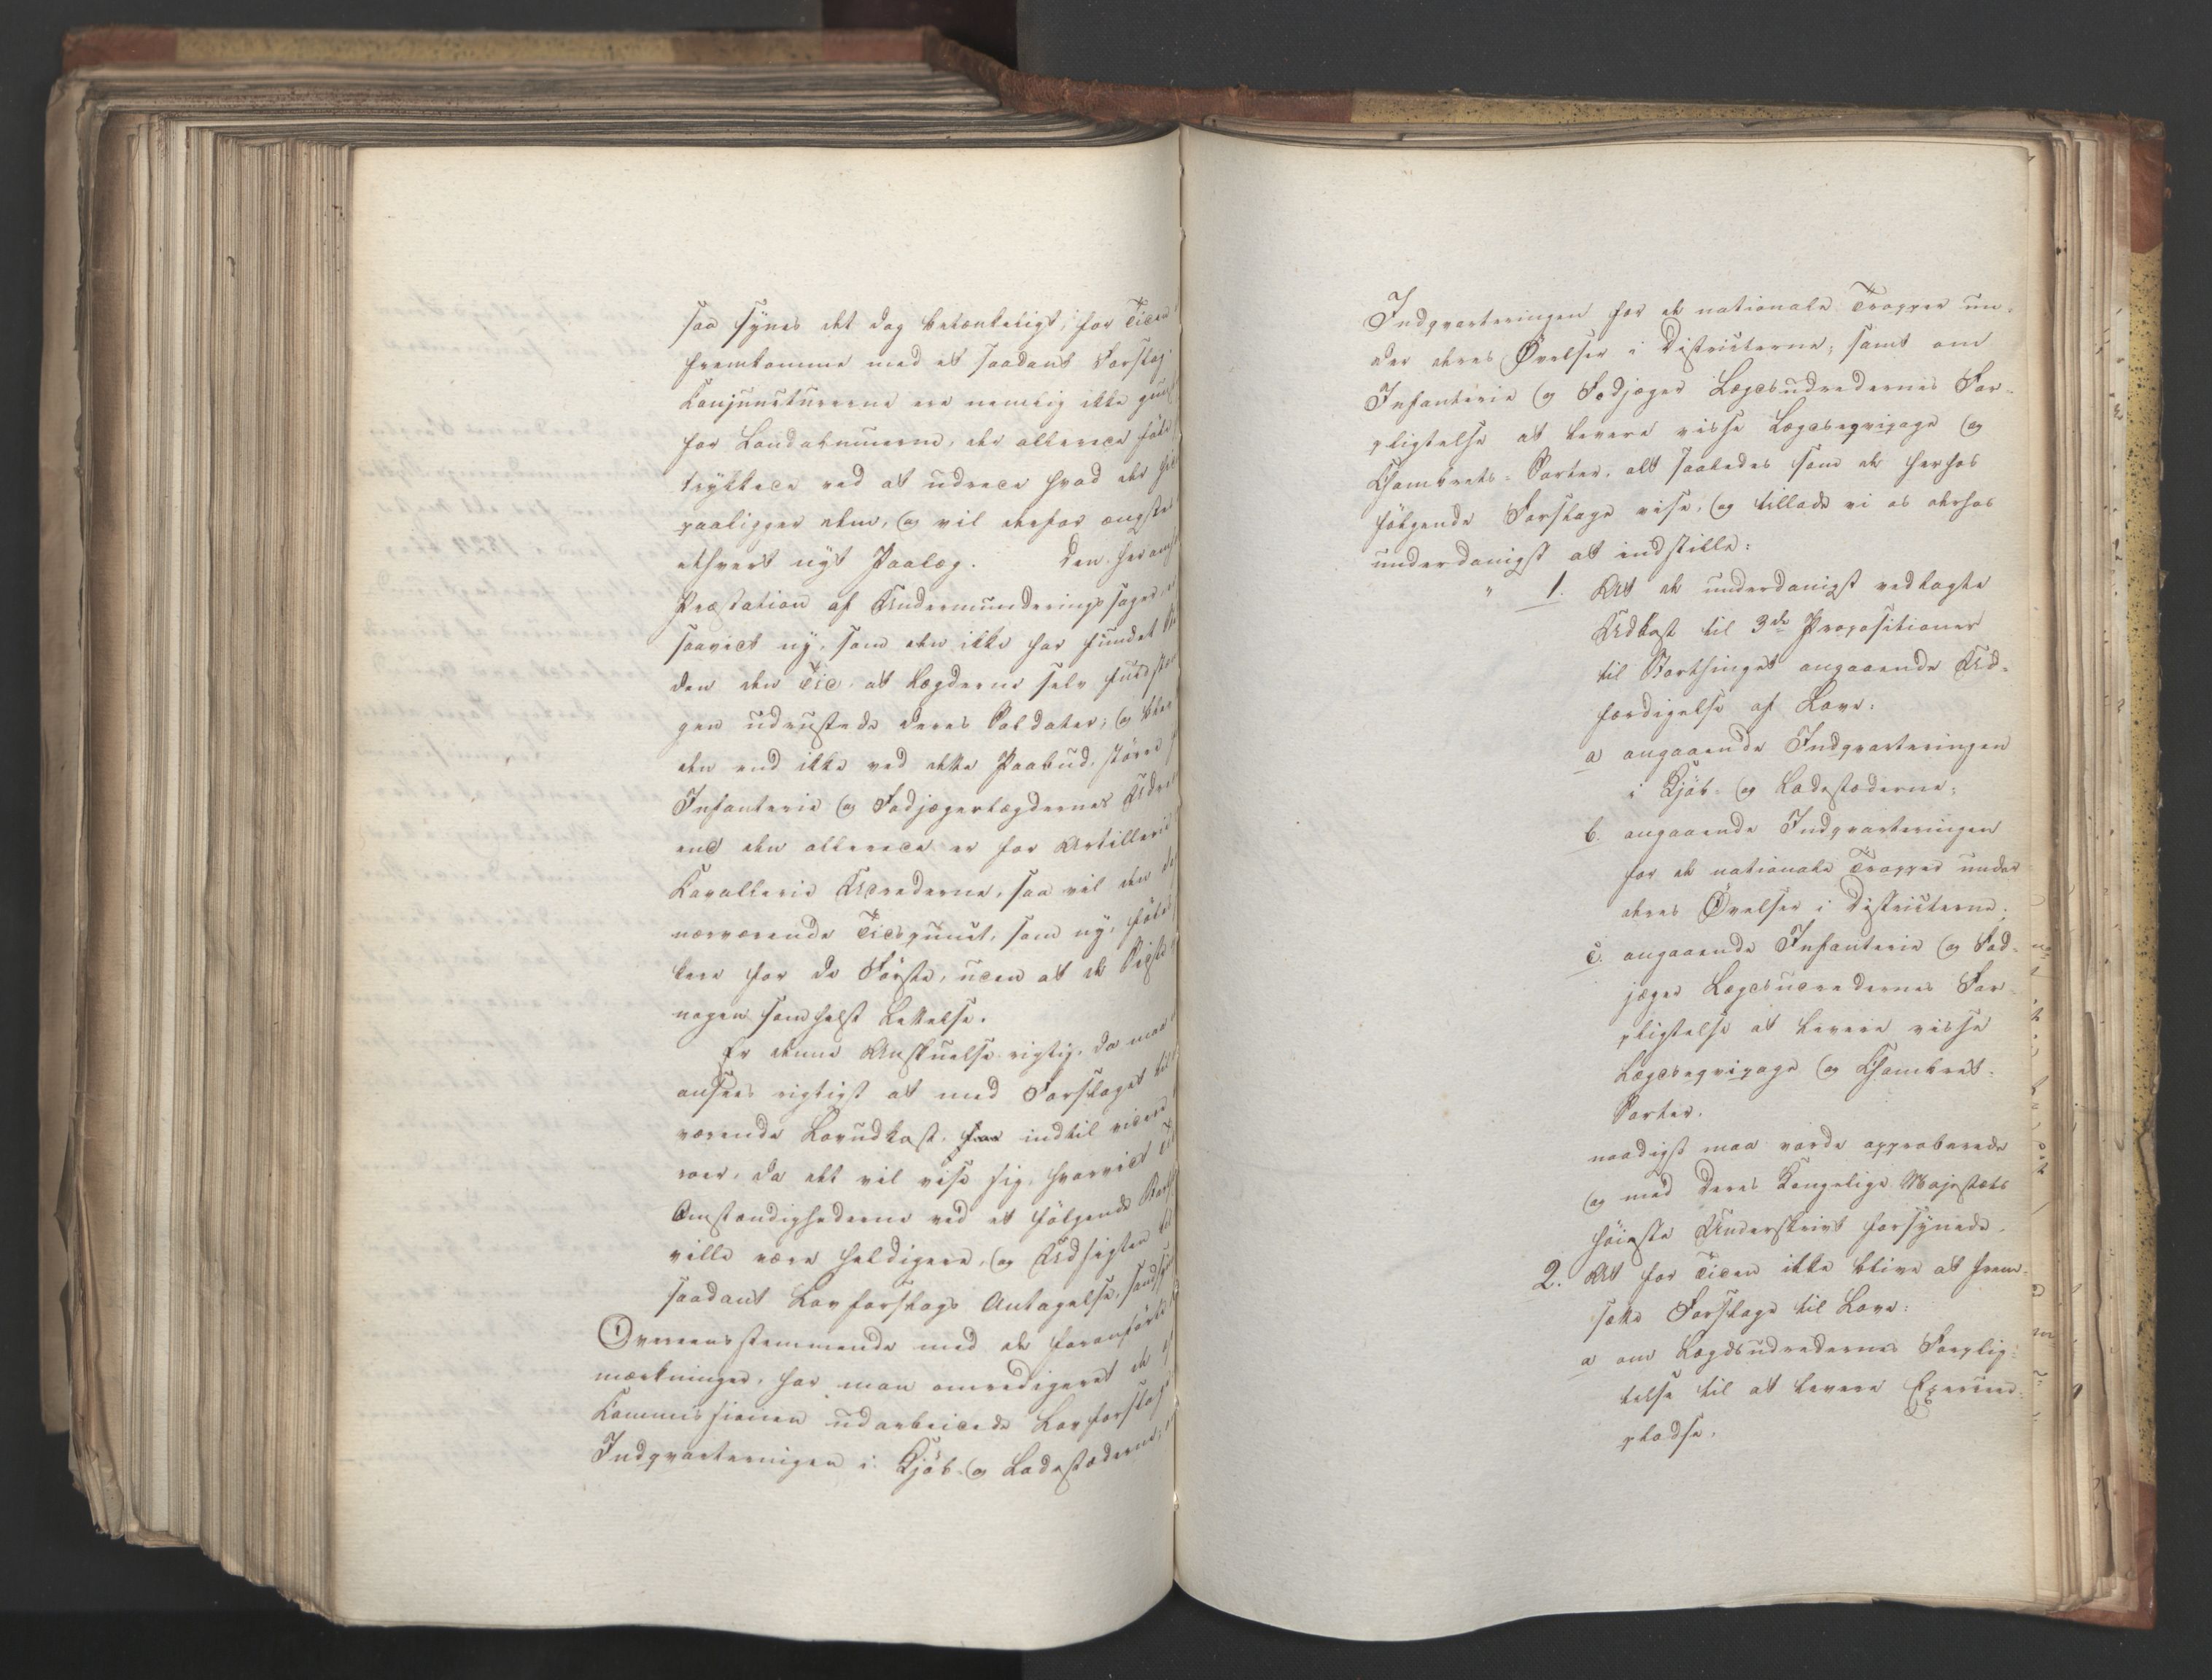 saa synes det dog betænkeligt, for Tiden
fremkomme med et saadant Forslag.
Konjuncturerne ere nemlig ikke
for Landalmuerne, der allerede føle
trykkede ved at udrede hvad der
paaligger dem, og vil derfor ængstes
ethvert nyt Paalæg. Den her
Præstation af Undermunderingssager
saavidt ny, som den ikke har fundet
den den Tid, at Lægderne selv
gen udrustede deres Soldater; og
den end ikke ved dette Paabud, større
Infanterie og Fodjægerlægdernes
end den allerede er for Artillerie
Kavallerie Udrederne, saa vil den
nærværende Tidspunct, som ny, føles
bare for de Første, uden at de Sidste
nogen somhelst Lettelse.
Er denne Anskuelse rigtig, da maa
ansees rigtigst at med Forslaget til
værende Lovudkast, indtil videre
roer, da det vil vise sig, hvorvidt
Omstændighederne ved et følgende
ville være heldigere, og Udsigten til
saadant Lovforslags Antagelse,
Overeensstemmende med de foranførte
mærkninger, har man omredigeret de
Kommissionen udarbeidede Lovforslag
Indqvarteringen i Kjøb- og Ladestæderne,
Indqvarteringen for de nationale Tropper un-
der deres Øvelser i Districterne, samt om
Infanterie og Fodjæger Lægdsudredernes For-
pligtelse at levere visse Lægdseqvipage og
Chambrets-Sorter, alt saaledes som de herhos
følgende Forslage vise, og tillade vi os derhos
underdanigst at indstille:
" 1. At de underdanigst vedlagte
Udkast til 3de Propositioner
til Storthinget angaaende Ud-
færdigelse af Love:
a angaaende Indqvarteringen
i Kjøb- og Ladestæderne;
b. angaaende Indqvarteringen
for de nationale Tropper under
deres Øvelser i Districterne;
c. angaaende Infanterie og Fod-
jæger Lægdsudredernes For-
pligtelse at levere visse
Lægdseqvipage og Chambret-
Sorter,
naadigst maa vorde approberede
og med Deres Kongelige Majestæts
høieste Underskrivt forsynede.
2. At for Tiden ikke blive at frem-
sætte Forslage til Love:
a om Lægdsudredernes Forplig-
telse til at levere Exerceer-
pladse,